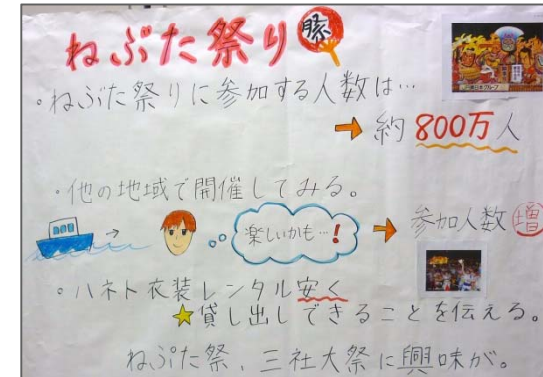 ねぶた祭り 祭
・ねぶた祭りに参加する人数は…
→ 約800万人
・他の地域で開催してみる。
→
楽しいかも…!
→ 参加人数 増
・ハネト衣装レンタル安く
★貸し出しできることを伝える。
ねぷた祭、三社大祭に興味が。